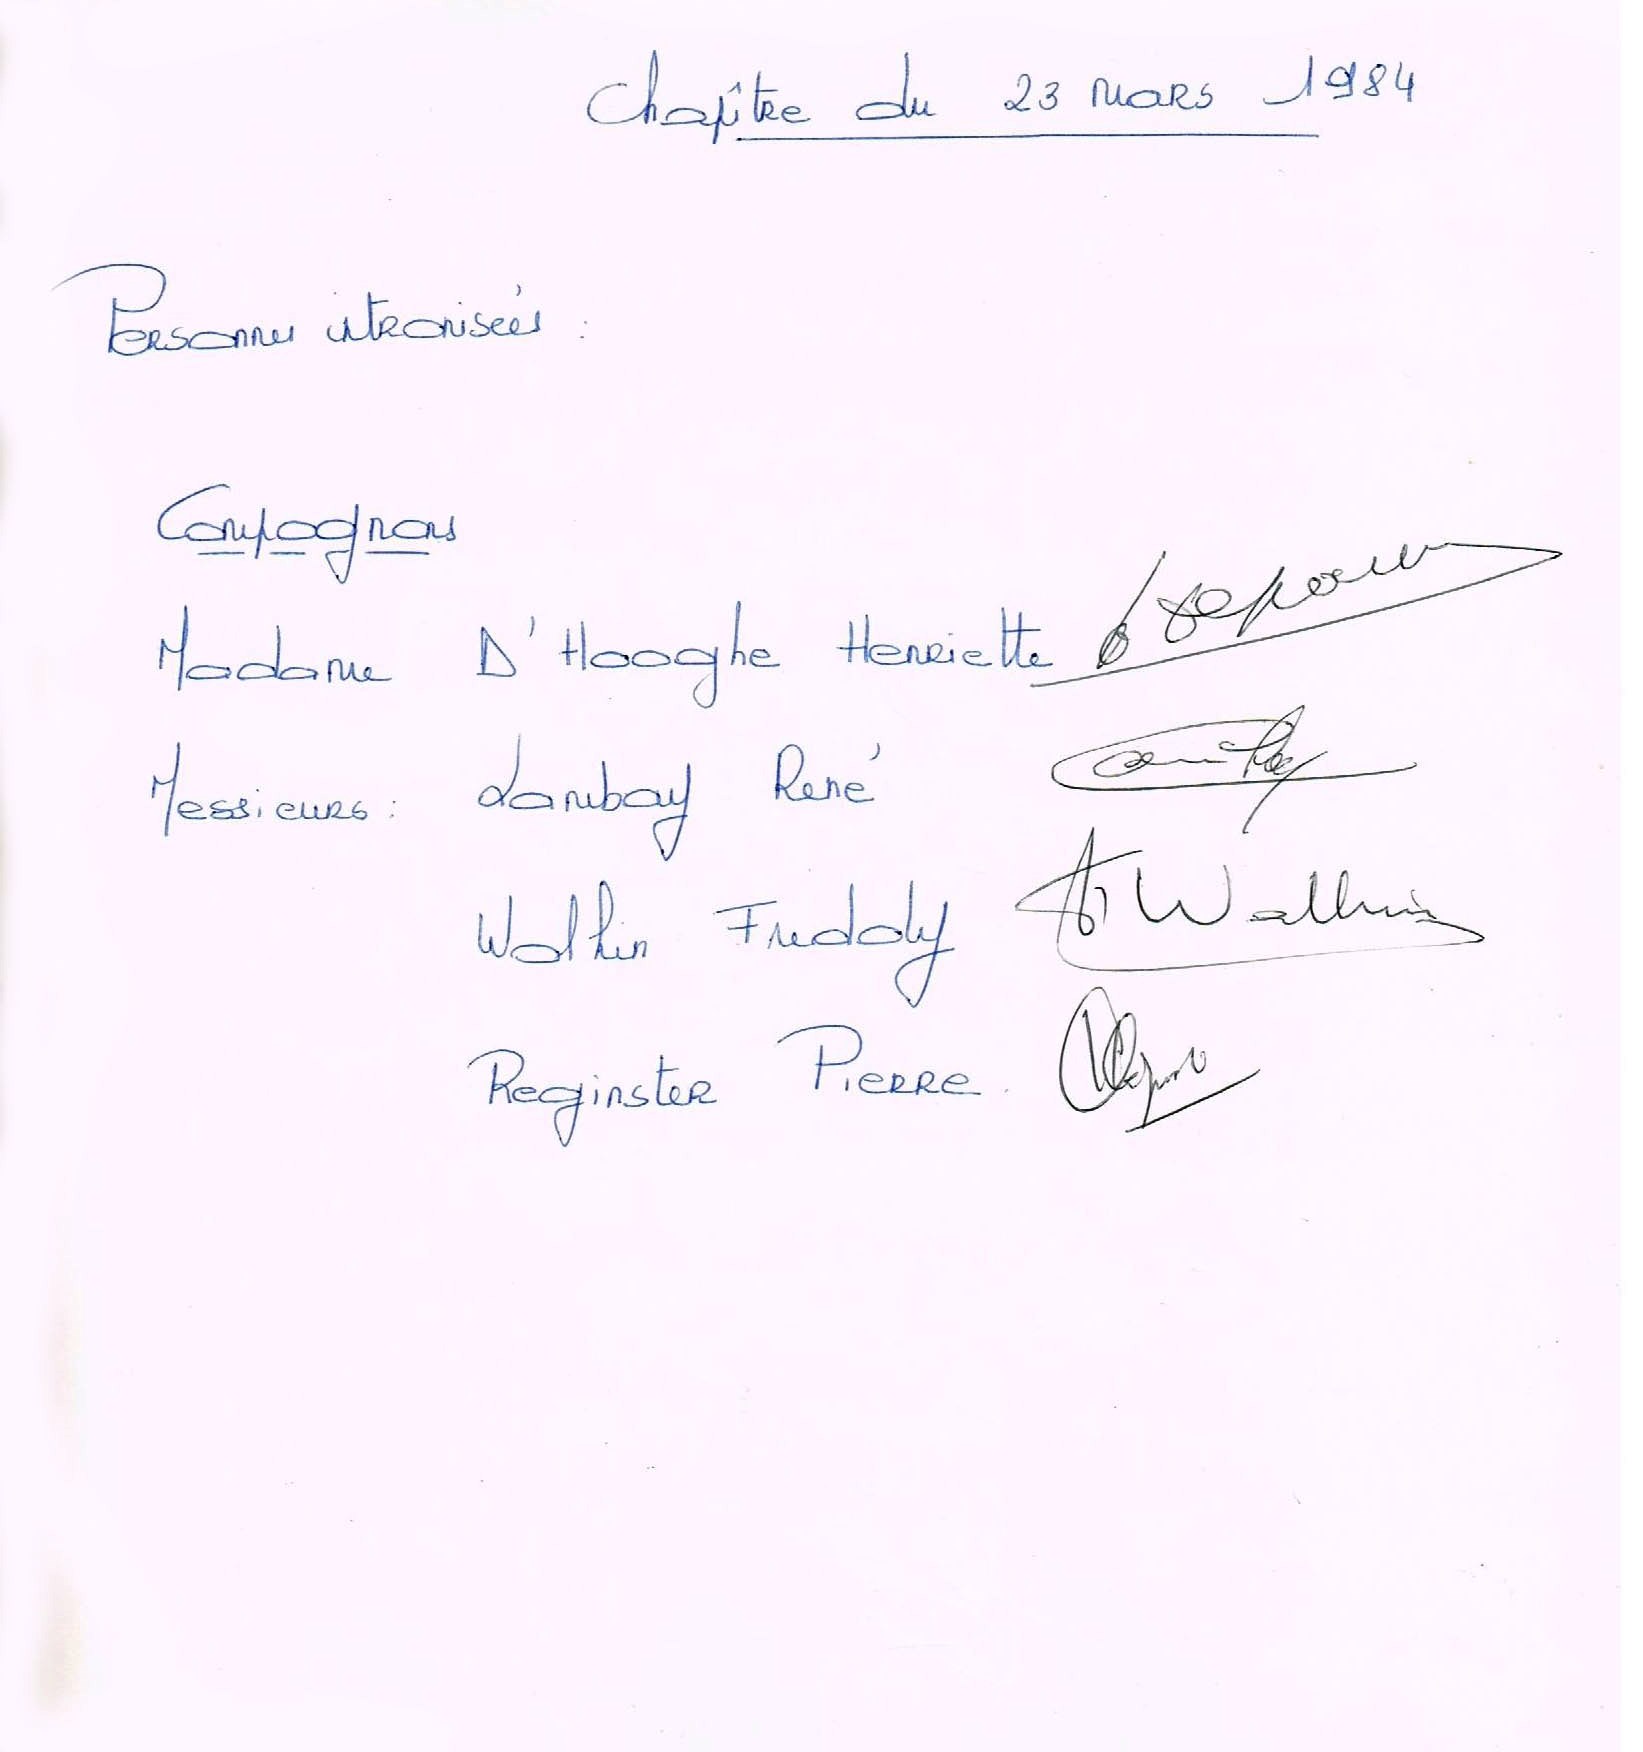 Chapître du 23 mars 1984
Personnes intronisées :
Compagnons
Madame D'Hooghe Henriette
Messieurs : Lambay René
Walhin Freddy Walhin
Reginster Pierre